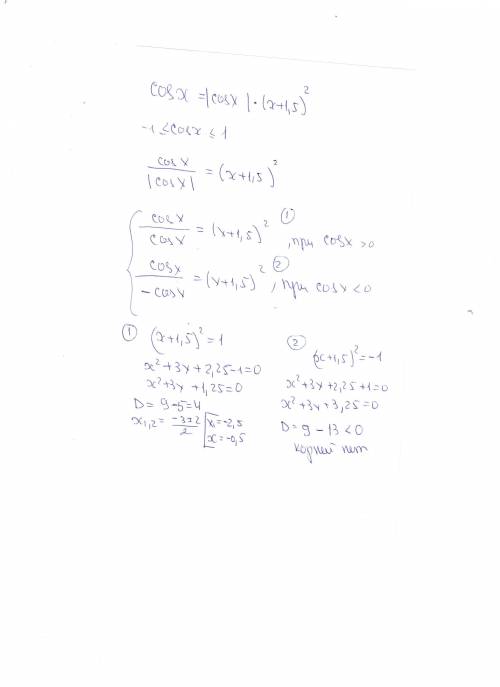 cosx = |cosx| · (x+1,5)²
-1 ≤ cosx ≤ 1
cosx / |cosx| = (x+1,5)²
{ cosx / cosx = (x+1,5)² ① , при cosx > 0
cosx / -cosx = (x+1,5)² ② , при cosx < 0
① (x+1,5)² = 1
x² + 3x + 2,25 - 1 = 0
x² + 3x + 1,25 = 0
D = 9 - 5 = 4
x₁,₂ = -3±2 / 2 [ x = -2,5
x = -0,5
② (x+1,5)² = -1
x² + 3x + 2,25 + 1 = 0
x² + 3x + 3,25 = 0
D = 9 - 13 < 0
корней нет